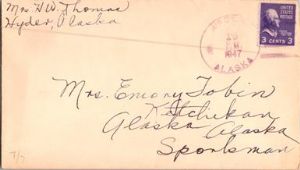 Mrs H W. Thomas
Hyder, Alaska
HYDER
19
1947
ALASKA
UNITED STATES POSTAGE
3 CENTS 3
Mrs. Emery Tobin
Ketchikan
Alaska Alaska
Sportsman